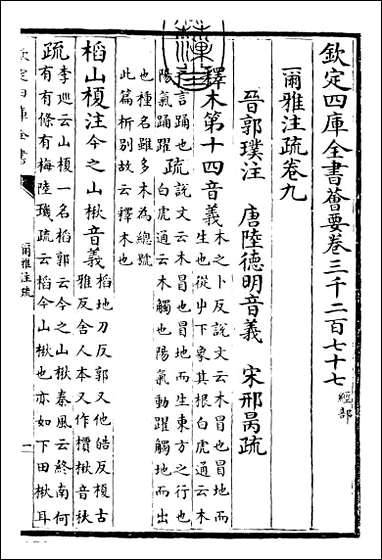 欽定四庫全書薈要卷三千二百七十七 經部
爾雅注疏卷九
晉郭璞注 唐陸德明音義 宋邢昺疏
釋木第十四音義 木之卜反說文云木冒也冒地而
生也從屮下象其根白虎通云木
言踊也
陽氣踊躍 疏 說文云木冒也冒地而生東方之行也
白虎通云木觸也陽氣動躍觸地而出
也種名雖多木為總號
此篇析別故云釋木也
槄山榎注今之山楸音義 槄地刀反郭又他皓反榎古
雅反舍人本又作檟楸音秋
疏 李廵云山榎一名槄郭云今之山楸秦風云終南何
有有條有梅陸璣疏云槄今山楸也亦如下田楸耳
欽定四庫全書
爾雅注疏
一